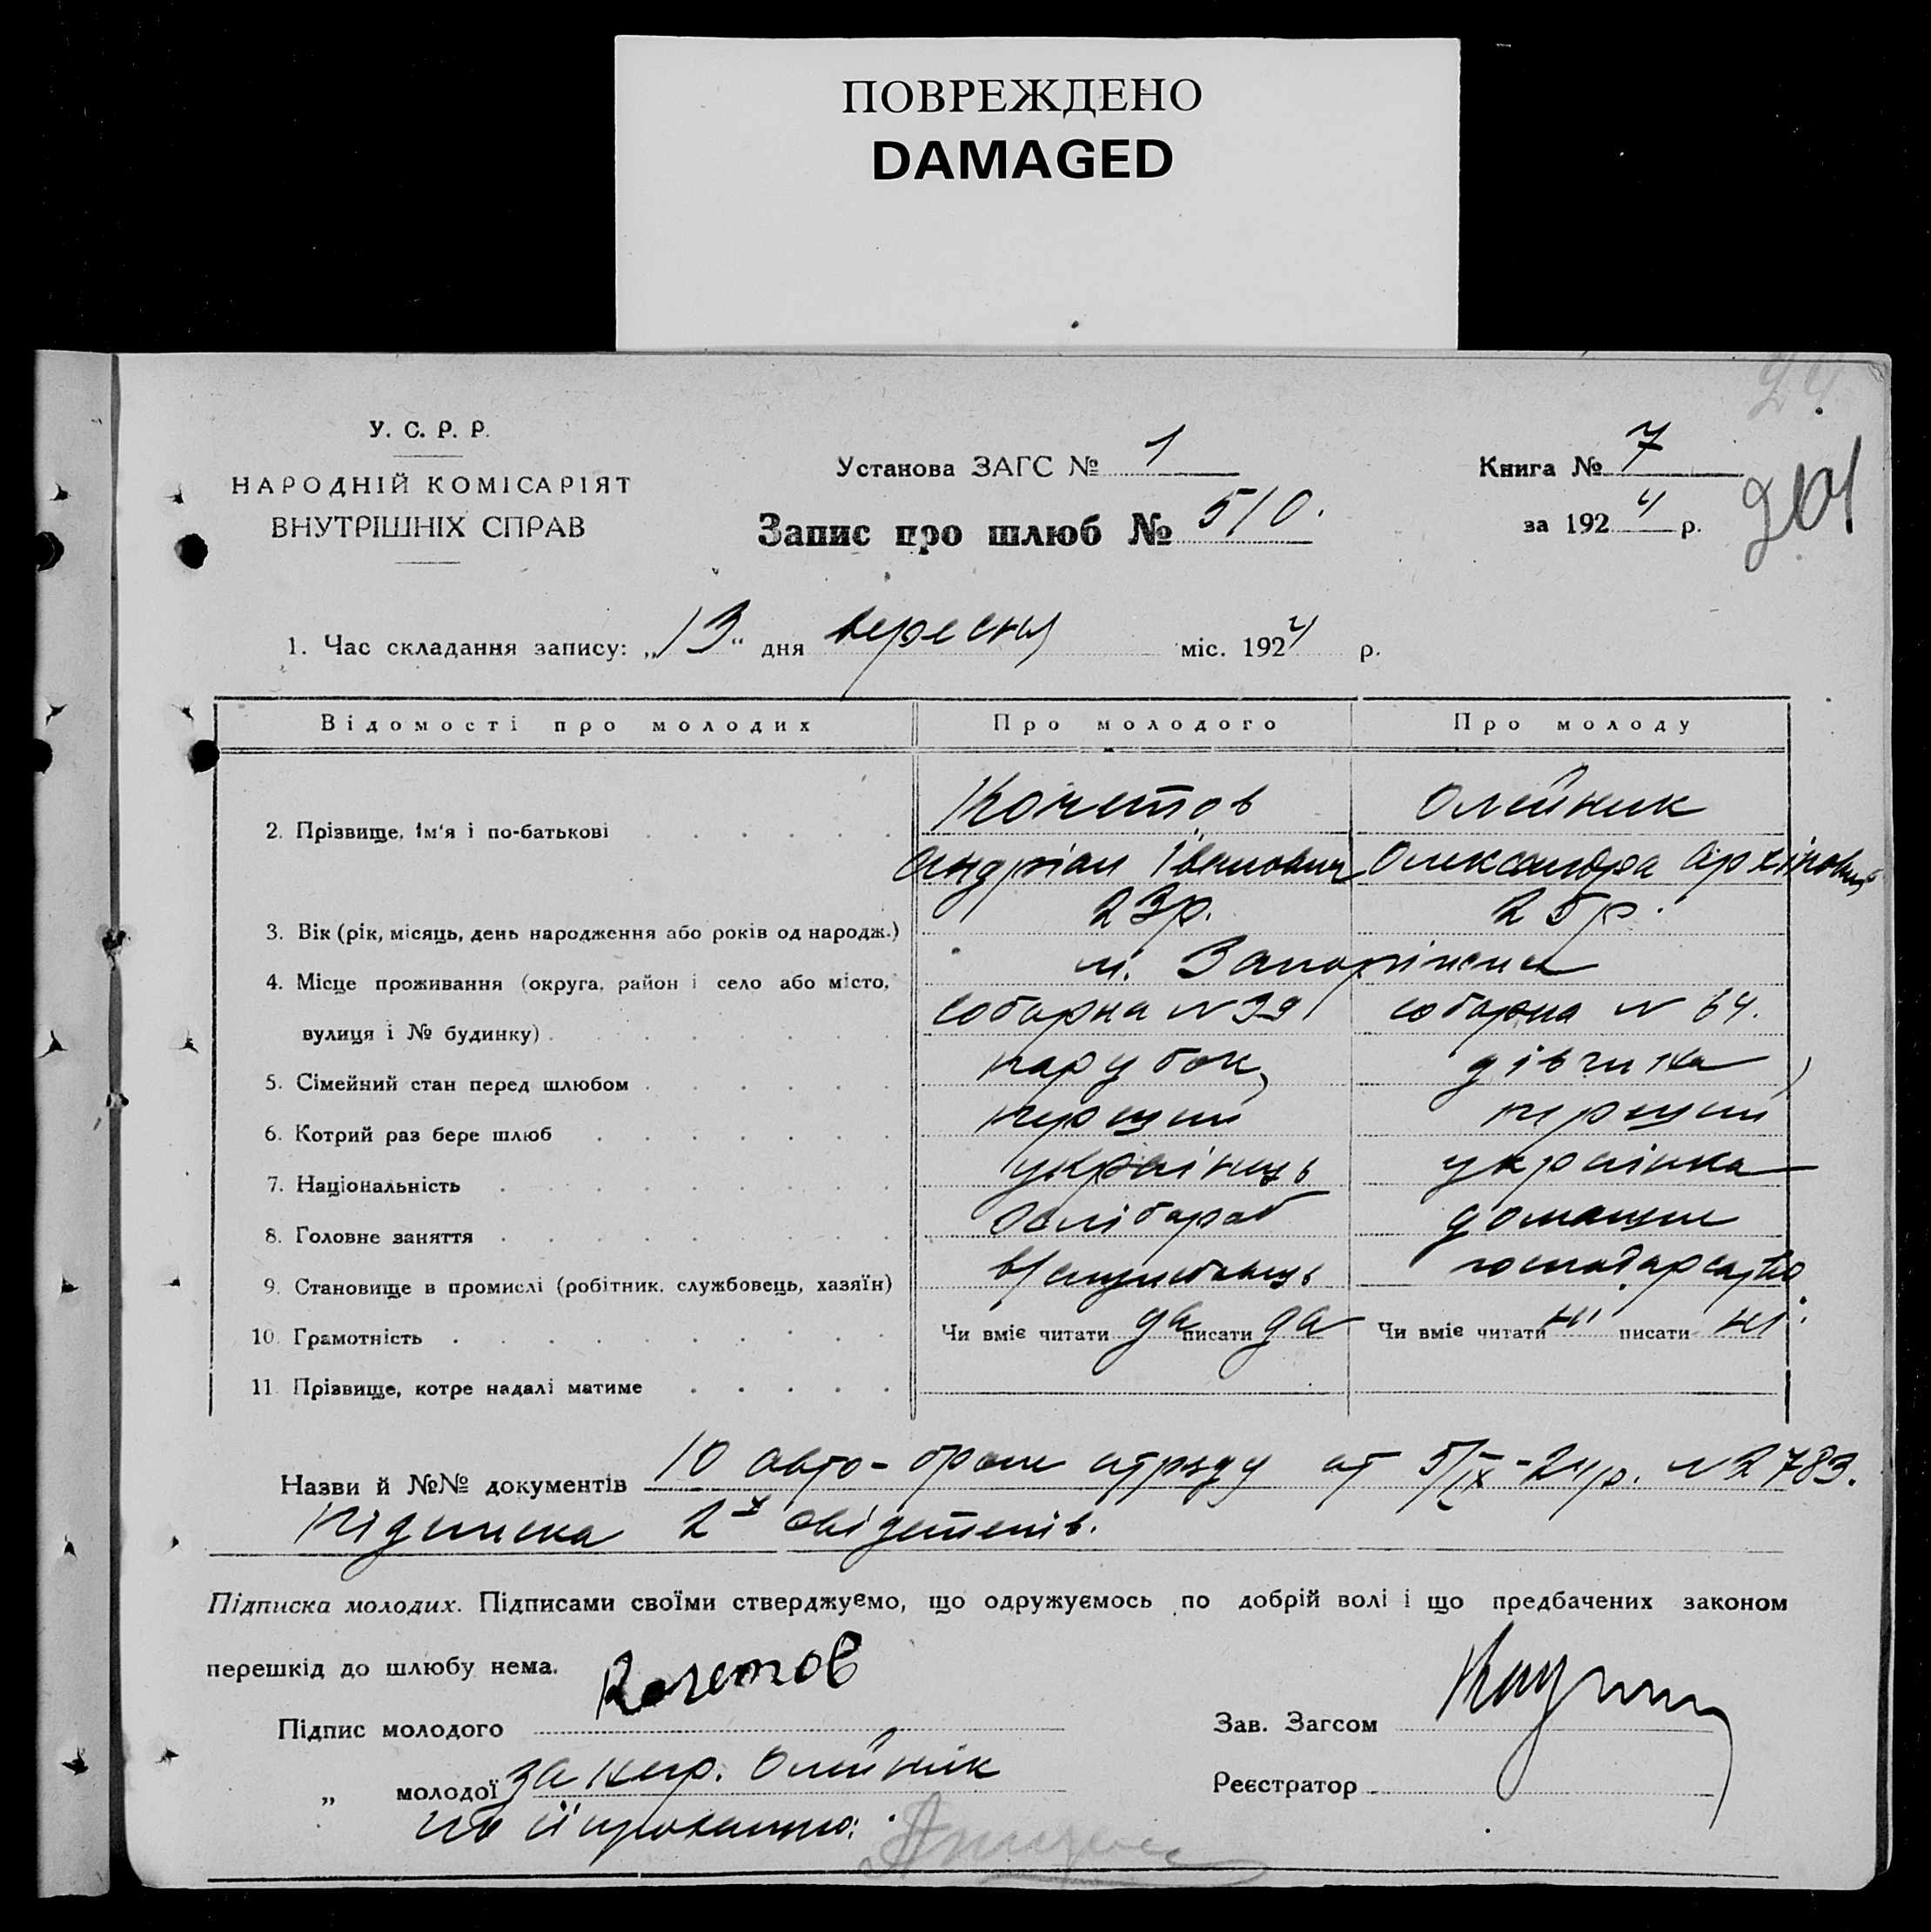 ПОВРЕЖДЕНО
DAMAGED
У. С. Р. Р.
НАРОДНІЙ КОМІСАРІЯТ
ВНУТРІШНІХ СПРАВ
Установа ЗАГС № 1
Запис про шлюб № 510.
Книга № 7
за 1924 р.
201
24
1. Час складання запису: „13“ дня вересня міс. 1924 р.
Відомості про молодих Про молодого Про молоду
Кочетов Олейник
2. Прізвище, ім'я і по-батькові
Андріан Іванович Олександра Архіповна
3. Вік (рік, місяць, день народження або років од народж.) 23р. 25р.
4. Місце проживання (округа, район і село або місто, м. Запоріжжя
вулиця і № будинку) Соборна № 39 Соборна № 64.
5. Сімейний стан перед шлюбом парубок, дівчина,
6. Котрий раз бере шлюб перший перший
7. Національність українець українка
8. Головне заняття домашне
9. Становище в промислі (робітник, службовець, хазяїн) в/службовець господарство
10. Грамотність Чи вміє читати да писати да Чи вміє читати ні писати ні.
11. Прізвище, котре надалі матиме
Назви й №№ документів 10 авто-брон отряду от 5/ІХ-24р. № 2783.
Підписка 2х свідетелів.
Підписка молодих. Підписами своїми стверджуємо, що одружуємось по добрій волі і що предбачених законом
перешкід до шлюбу нема.
Підпис молодого Кочетов
Зав. Загсом
„ молодої за негр. Олейнік
Реєстратор
по її проханню: